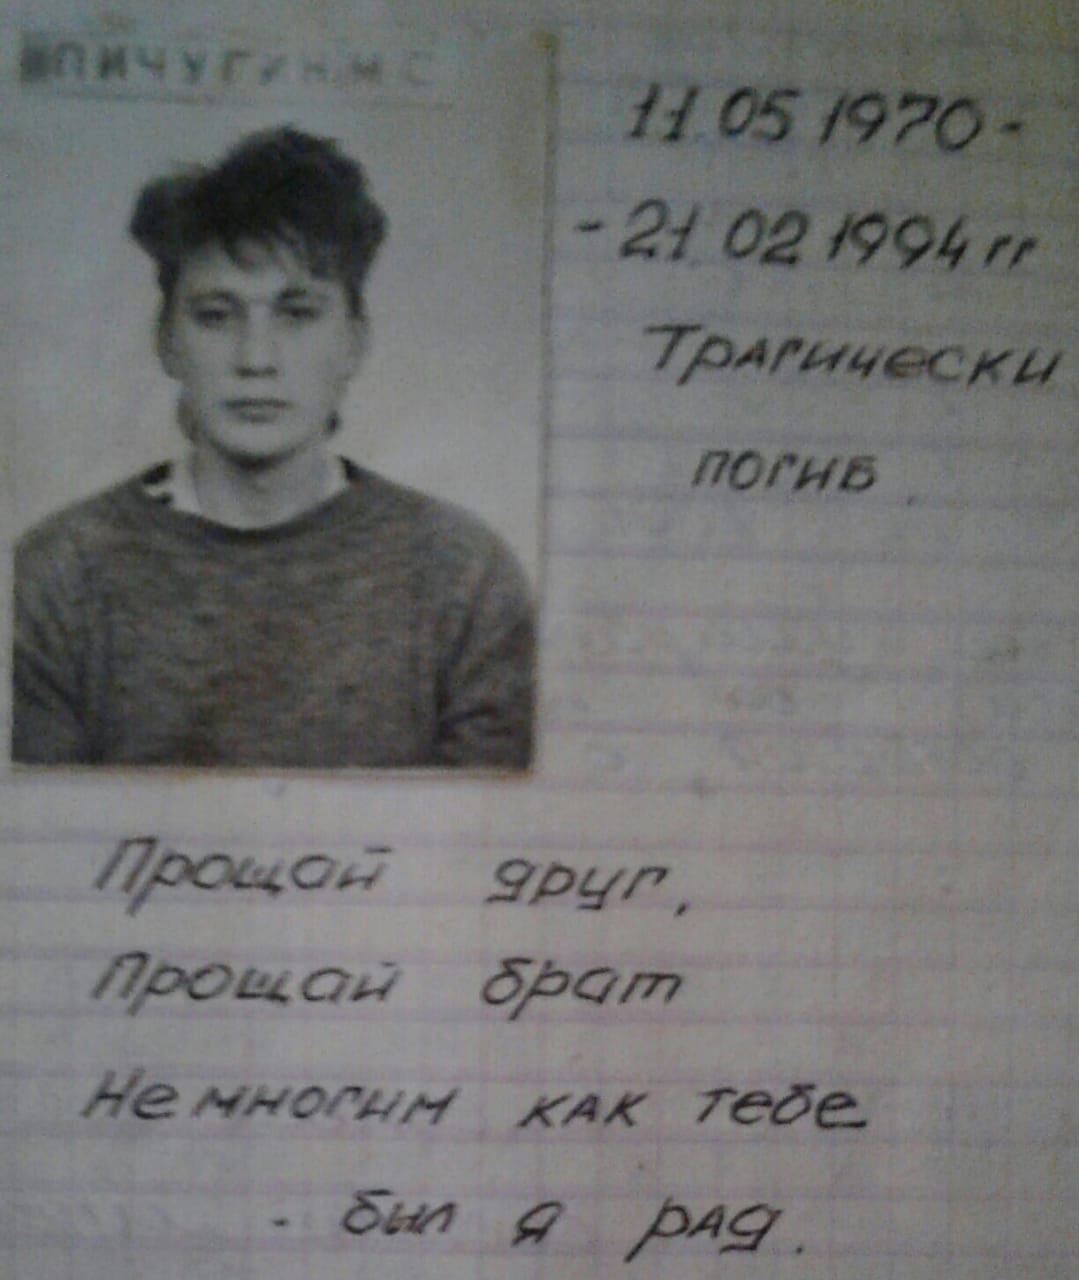 ПИЧУГИН М С
11 05 1970 -
- 21 02 1994 гг
Трагически
погиб.
Прощай друг,
Прощай брат
Не многим как тебе
- был я рад.